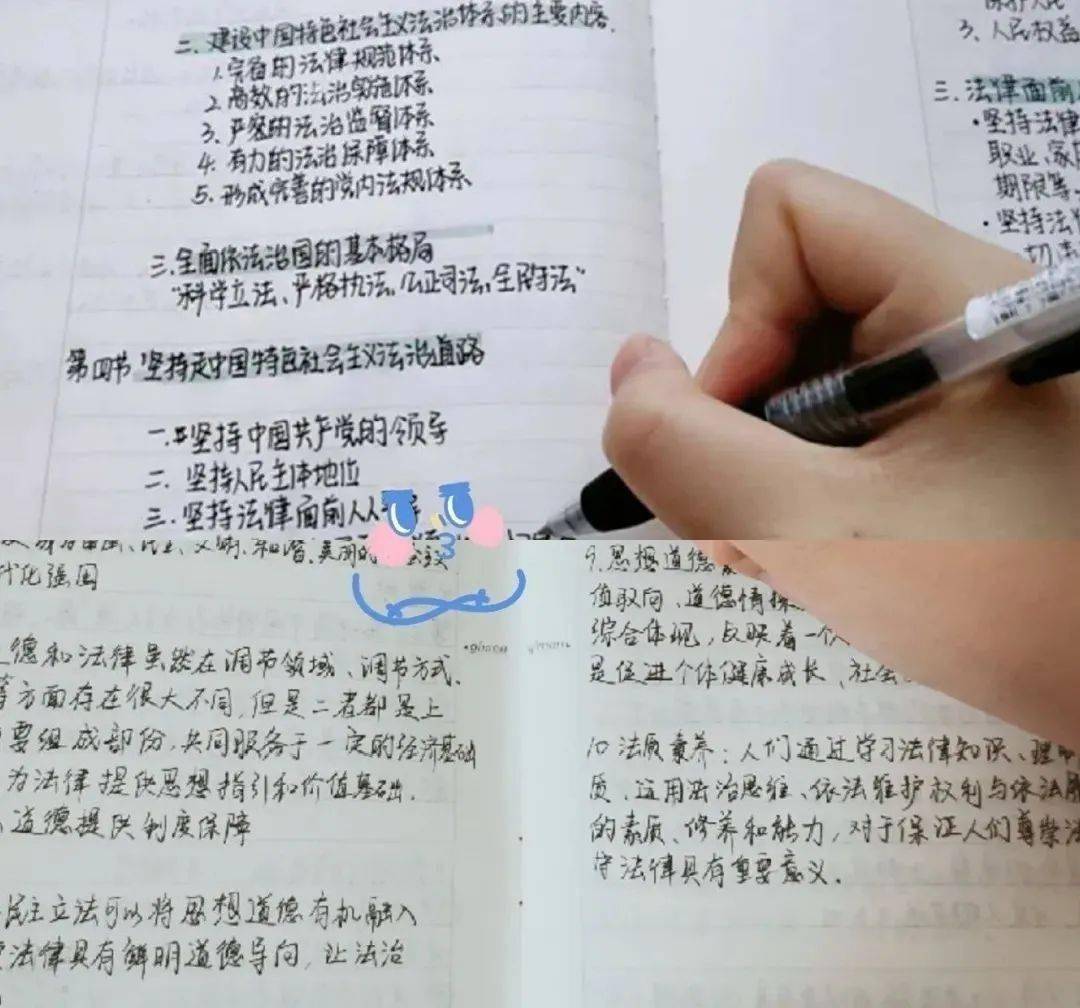 二、建设中国特色社会主义法治体系的主要内容.
1.完备的法律规范体系
2.高效的法治实施体系
3、严密的法治监督体系
4.有力的法治保障体系
5.形成完善的党内法规体系
三.全面依法治国的基本格局
"科学立法、严格执法、公正司法、全民守法"
第四节 坚持走中国特色社会主义法治道路
一.坚持中国共产党的领导
二.坚持人民主体地位
三.坚持法律面前人人
3、人民权益
三.法律面前
·坚持法律
职业、家
期限等
·坚持法
一切
文明、和谐、美丽的
代化强国
德和法律虽然在调节领域、调节方式、
等方面存在很大不同,但是二者都是上
要组成部份,共同服务于一定的经济基础
为法律提供思想指引和价值基础.
道德提供制度保障
民主立法可以将思想道德有机融入
法律具有鲜明道德导向,让法治
9.思想道德
值取向、道德情操
综合体现,反映着一个
是促进个体健康成长、社会
10 法质素养:人们通过学习法律知识、理
质、运用法治思维、依法维护权利与依法
的素质、修养和能力,对于保证人们尊崇法
守法律具有重要意义.